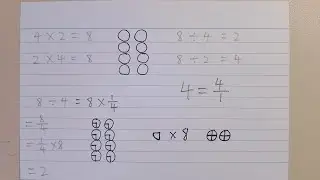 4 × 2 = 8
2 × 4 = 8
8 ÷ 4 = 2
8 ÷ 2 = 4
4 = 4/1
8 ÷ 4 = 8 × 1/4
= 8/4
= 1/4 × 8
= 2
× 8